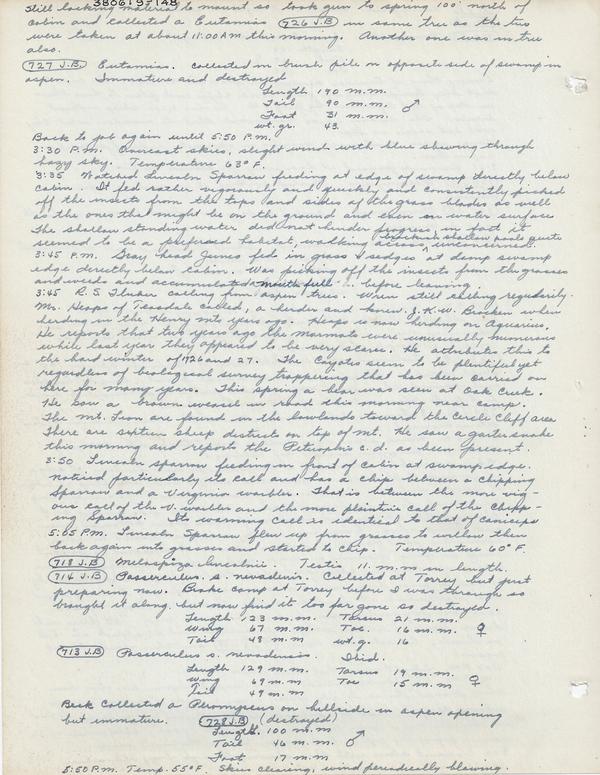 380619-148
Still lacking material to mount so took gun to spring 100' north of
cabin and collected a Eutamias 726 J.B in same tree as the two
were taken at about 11:00 AM this morning. Another one was in tree
also.
727 J.B. Eutamias. Collected in brush pile on opposite side of swamp in
aspen. Immature and destroyed
Length 190 m.m.
Tail 90 m.m. ♂
Foot 31 m.m.
wt. gr. 43.
Back to job again until 5:50 P.M.
3:30 P.M. Overcast skies, slight wind with blue showing through
hazy sky. Temperature 63° F.
3:35 Watched Lincoln Sparrow feeding at edge of swamp directly below
cabin. It fed rather vigorously and quickly and consistently picked
off the insects from the tops and sides of the grass blades as well
as the ones that might be on the ground and even on water surface.
The shallow standing water did not hinder progress, in fact it
seemed to be a preferred habitat, walking across shallow pools quite unconcerned.
3:45 P.M. Gray-head Junco fed in grass & sedges at damp swamp
edge directly below cabin. Was picking off the insects from the grasses
and weeds and accumulated a mouth full before leaving.
3:45 R. S. Flicker calling from aspen trees. When still calling regularly.
Mr. Heaps of Teasdale called, a herder and knew J.K.W. Bracken when
herding in the Henry mts years ago. Heaps is now herding on Aquarius.
He reports that two years ago the marmots were unusually numerous
while last year they appeared to be very scarce. He attributes this to
the hard winter of 1926 and 27. The Coyotes seem to be plentiful yet
regardless of biological survey trappering that has been carried on
here for many years. This spring a bear was seen at Oak Creek.
He saw a brown weasel in road this morning near camp.
The Mt. Lion are found in the lowlands toward the Circle Cliff area
There are sixteen sheep districts on top of mt. He saw a garter snake
this morning and reports the c. d. as been present.
3:50 Lincoln sparrow feeding in front of cabin at swamp edge.
noticed particularly its call and has a chip between a Chipping
Sparrow and a Virginia warbler. That is between the more vig-
ous call of the V. warbler and the more plaintive call of the Chipp-
ing Sparrow. Its warning call is identical to that of caniceps
5:05 P.M. Lincoln Sparrow flew up from grasses to willow then
back again into grasses and started to chip. Temperature 60° F.
718 J.B Melospiza lincolnii. Testis 11. m.m in length.
714 J.B Passerculus s. nevadensis. Collected at Torrey but just
preparing now. Broke camp at Torrey before I was through so
brought it along, but now find it too far gone so destroyed.
Length 123 m.m. Tarsus 21 m.m.
Wing 67 m.m. Toe. 16 m.m. ♀
Tail 48 m.m wt. g. 16
713 J.B Passerculus s. nevadensis. Ibid.
Length 129 m.m. Tarsus 19 m.m.
Wing 69 m.m. Toe 15 m.m ♀
Tail 49 m.m
Beck Collected a Peromyscus on hillside in aspen opening
but immature. 728 J.B (destroyed)
Length. 100 m.m
Tail 46 m.m. ♂
Foot 17 m.m
5:50 P.M. Temp. 55° F. Skies clearing, wind periodically blowing.